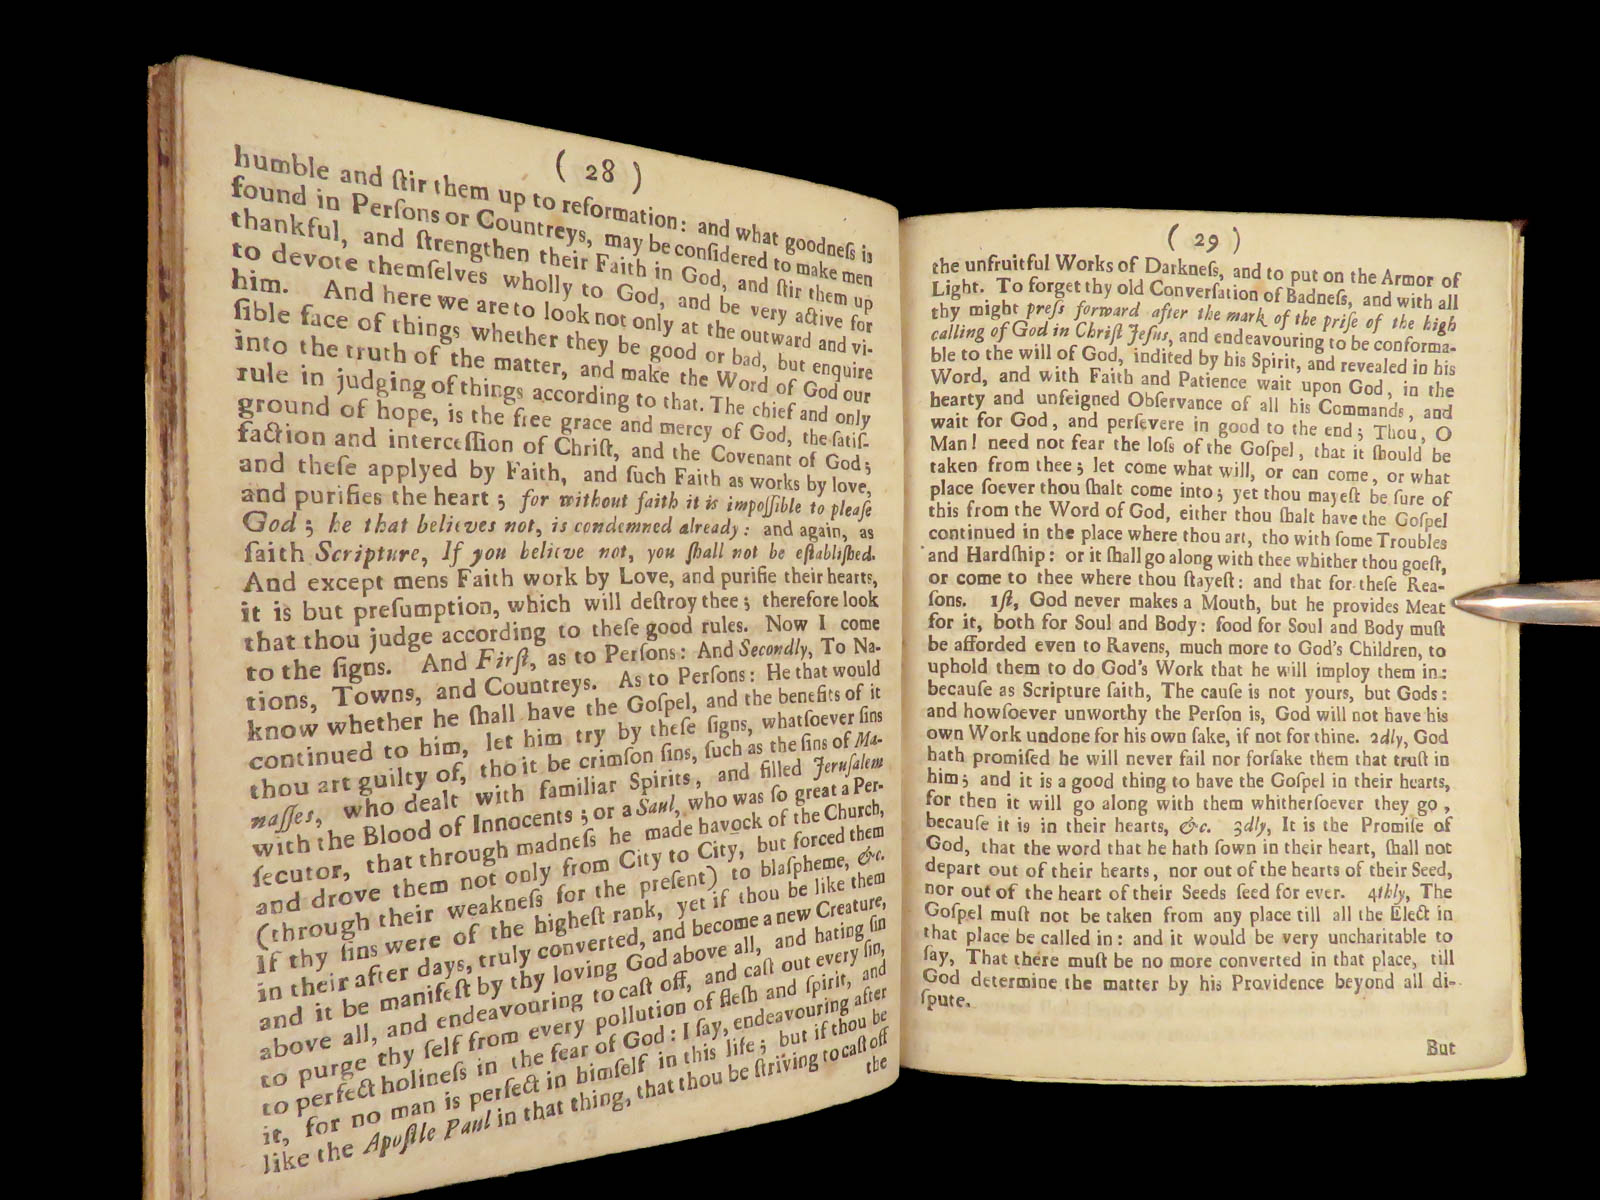 ( 28 )
humble and ſtir them up to reformation: and what goodneſs is
found in Perſons or Countreys, may be conſidered to make men
thankful, and ſtrengthen their Faith in God, and ſtir them up
to devote themſelves wholly to God, and be very active for
him. And here we are to look not only at the outward and vi-
ſible face of things whether they be good or bad, but enquire
into the truth of the matter, and make the Word of God our
rule in judging of things according to that. The chief and only
ground of hope, is the free grace and mercy of God, the ſatiſ-
faction and interceſſion of Chriſt, and the Covenant of God;
and theſe applyed by Faith, and ſuch Faith as works by love,
and purifies the heart; for without faith it is impoſſible to pleaſe
God; he that believes not, is condemned already: and again, as
ſaith Scripture, If you believe not, you ſhall not be eſtabliſhed.
And except mens Faith work by Love, and purifie their hearts,
it is but preſumption, which will deſtroy thee; therefore look
that thou judge according to theſe good rules. Now I come
to the ſigns. And Firſt, as to Perſons: And Secondly, To Na-
tions, Towns, and Countreys. As to Perſons: He that would
know whether he ſhall have the Goſpel, and the benefits of it
continued to him, let him try by theſe ſigns, whatſoever ſins
thou art guilty of, tho it be crimſon ſins, ſuch as the ſins of Ma-
naſſes, who dealt with familiar Spirits, and filled Jeruſalem
with the Blood of Innocents; or a Saul, who was ſo great a Per-
ſecutor, that through madneſs he made havock of the Church,
and drove them not only from City to City, but forced them
(through their weakneſs for the preſent) to blaſpheme, &c.
If thy ſins were of the higheſt rank, yet if thou be like them
in their after days, truly converted, and become a new Creature,
and it be manifeſt by thy loving God above all, and hating ſin
above all, and endeavouring to caſt off, and caſt out every ſin,
to purge thy ſelf from every pollution of fleſh and ſpirit, and
to perfect holineſs in the fear of God: I ſay, endeavouring after
it, for no man is perfect in himſelf in this life; but if thou be
like the Apoſtle Paul in that thing, that thou be ſtriving to caſt off
the
( 29 )
the unfruitful Works of Darkneſs, and to put on the Armor of
Light. To forget thy old Converſation of Badneſs, and with all
thy might preſs forward after the mark of the priſe of the high
calling of God in Chriſt Jeſus, and endeavouring to be conforma-
ble to the will of God, indited by his Spirit, and revealed in his
Word, and with Faith and Patience wait upon God, in the
hearty and unfeigned Obſervance of all his Commands, and
wait for God, and perſevere in good to the end; Thou, O
Man! need not fear the loſs of the Goſpel, that it ſhould be
taken from thee; let come what will, or can come, or what
place ſoever thou ſhalt come into; yet thou mayeſt be ſure of
this from the Word of God, either thou ſhalt have the Goſpel
continued in the place where thou art, tho with ſome Troubles
and Hardſhip: or it ſhall go along with thee whither thou goeſt,
or come to thee where thou ſtayeſt: and that for theſe Rea-
ſons. 1ſt, God never makes a Mouth, but he provides Meat
for it, both for Soul and Body: food for Soul and Body muſt
be afforded even to Ravens, much more to God's Children, to
uphold them to do God's Work that he will imploy them in:
becauſe as Scripture ſaith, The cauſe is not yours, but Gods:
and howſoever unworthy the Perſon is, God will not have his
own Work undone for his own ſake, if not for thine. 2dly, God
hath promiſed he will never fail nor forſake them that truſt in
him; and it is a good thing to have the Goſpel in their hearts,
for then it will go along with them whitherſoever they go,
becauſe it is in their hearts, &c. 3dly, It is the Promiſe of
God, that the word that he hath ſown in their heart, ſhall not
depart out of their hearts, nor out of the hearts of their Seed,
nor out of the heart of their Seeds ſeed for ever. 4thly, The
Goſpel muſt not be taken from any place till all the Elect in
that place be called in: and it would be very uncharitable to
ſay, That there muſt be no more converted in that place, till
God determine the matter by his Providence beyond all di-
ſpute.
But